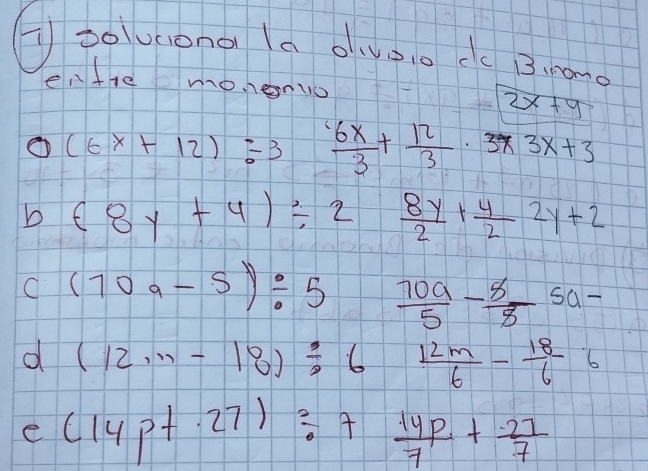 1) soluciona la divisio de Binomo
entre monomio
2x+4
a (6x + 12) ÷ 3 6x/3 + 12/3 · 3x + 3
b (8y + 4) ÷ 2 8y/2 + 4/2 2y + 2
c (10a - 5) ÷ 5 10a/5 - 5/5 5a -
d (12m - 18) ÷ 6 12m/6 - 18/6 6
e (14p + 27) ÷ 7 14p/7 + 27/7